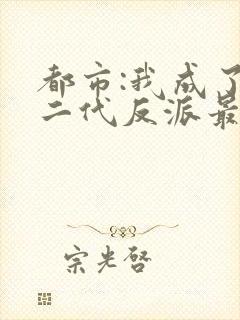 都市:我成了
二代反派最
宗光启